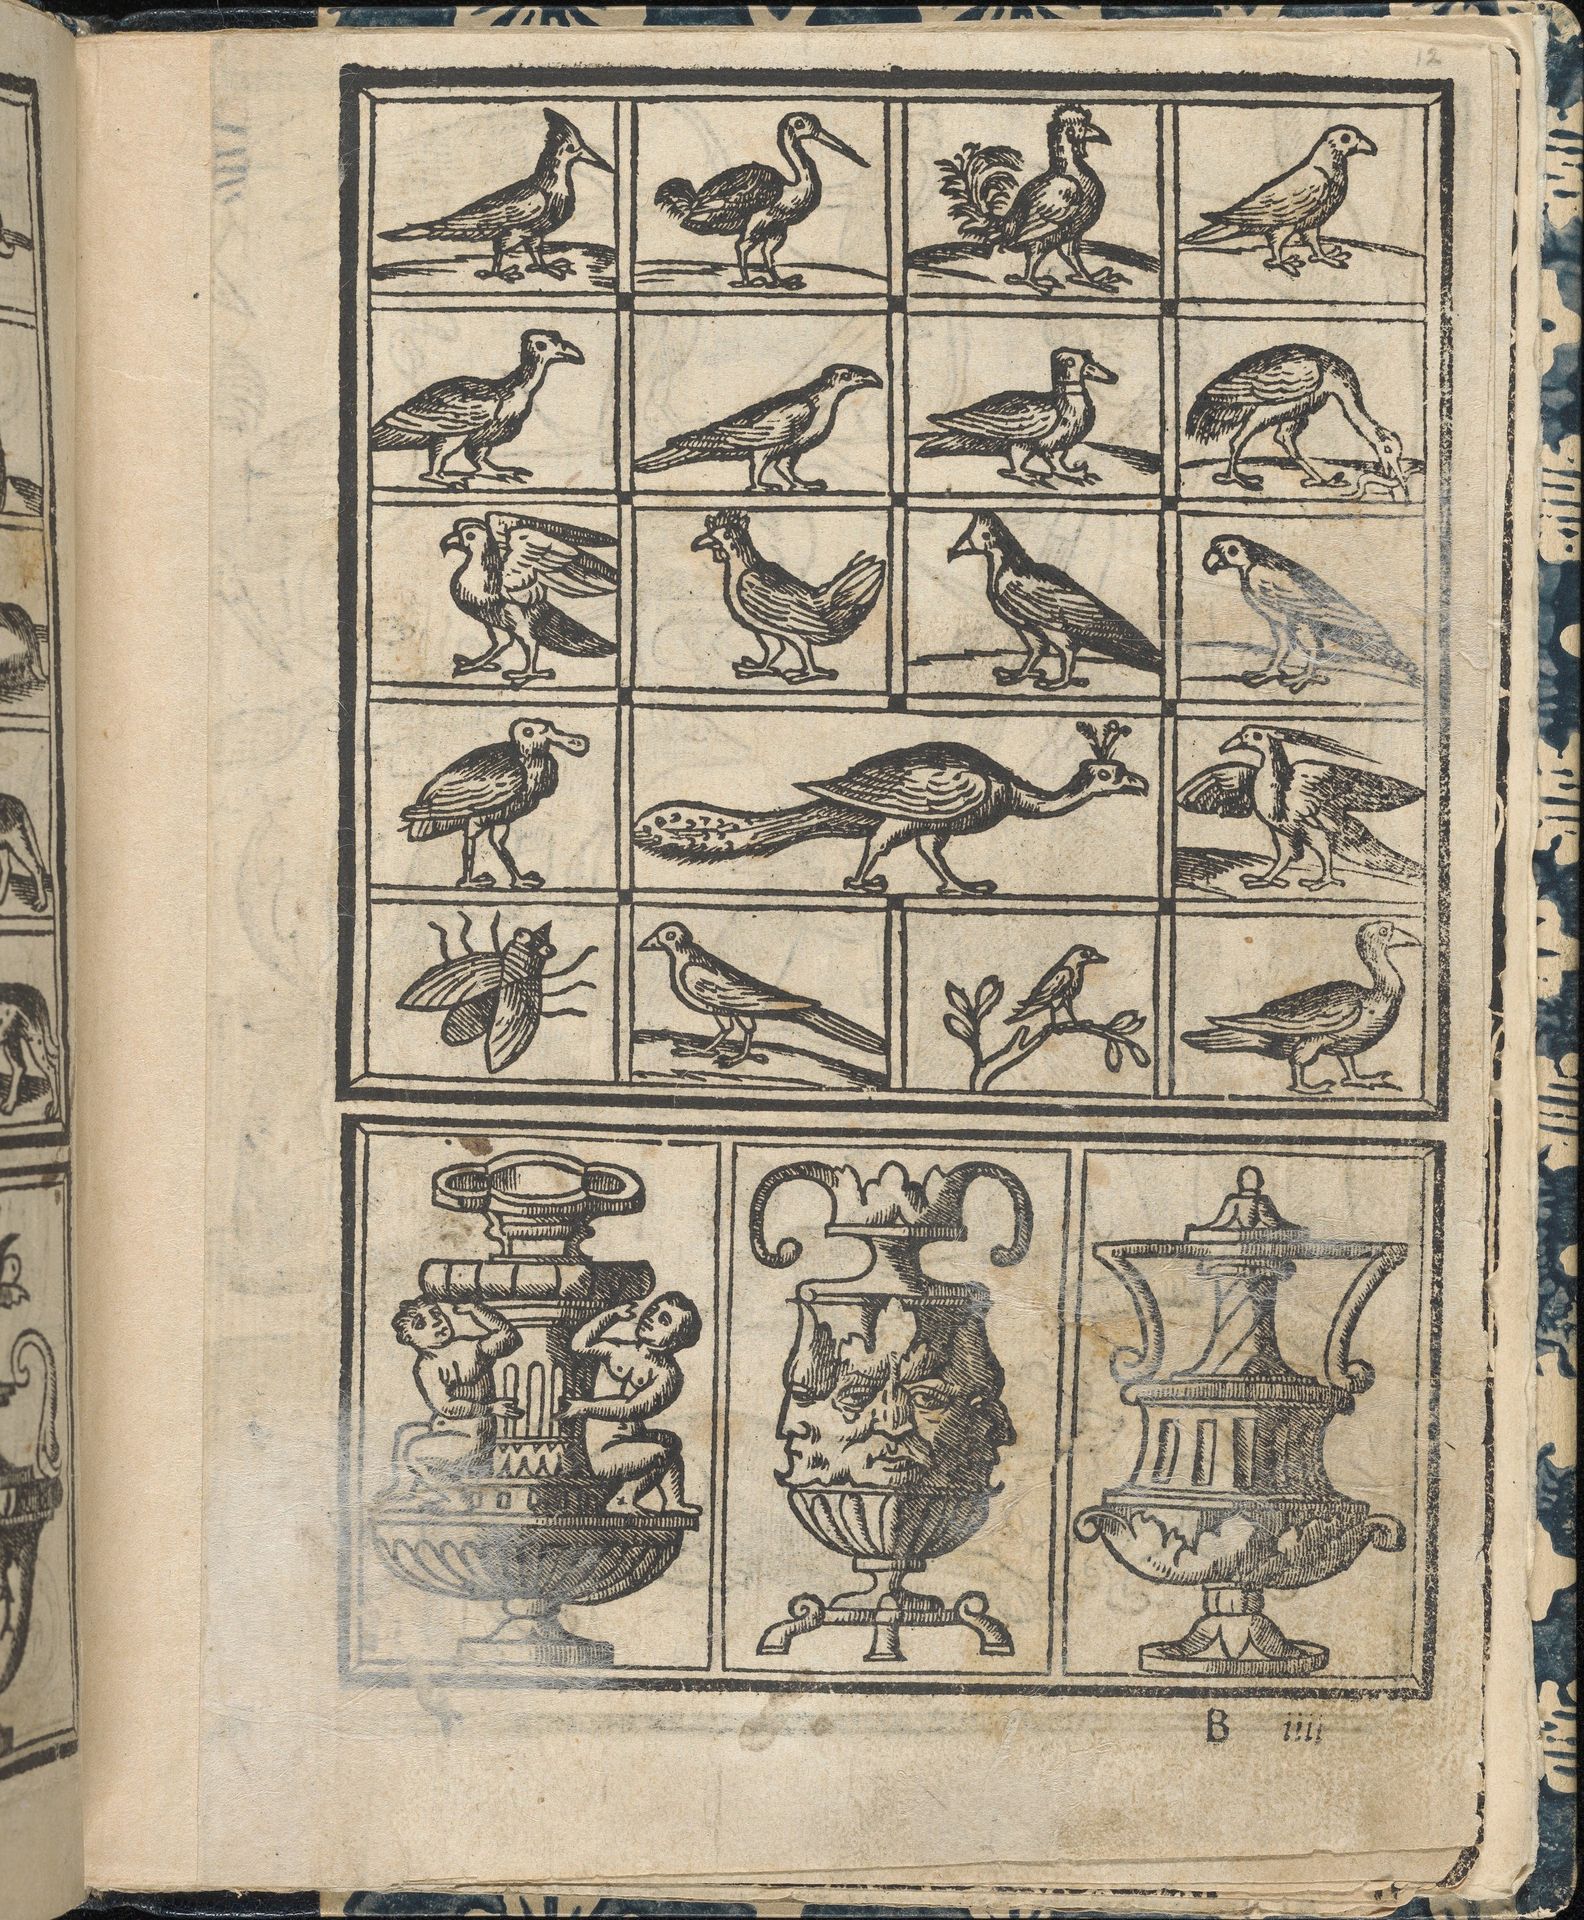 12
B iiii